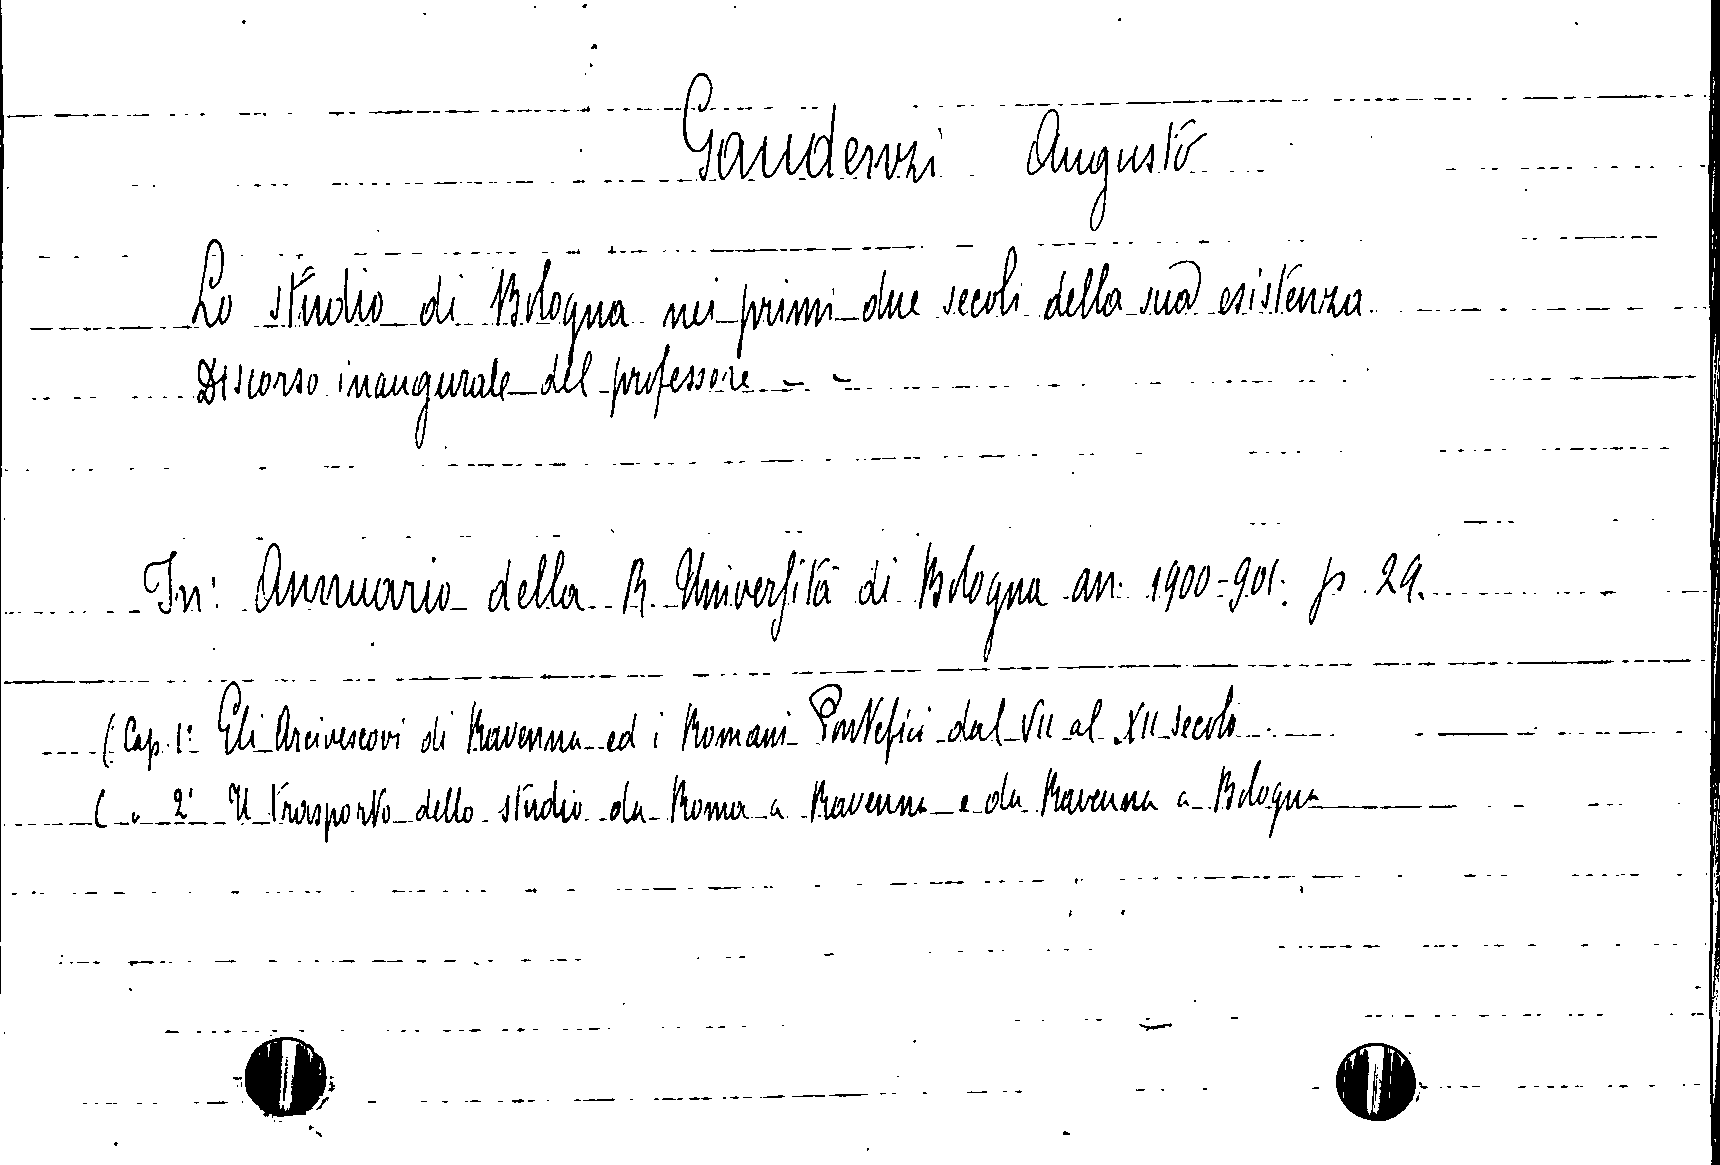 Gaudenzi Augusto
Lo studio di Bologna nei primi due secoli della sua esistenza
Discorso inaugurale del professore - -
In: Annuario della R. Università di Bologna an. 1900-901. p. 29.
(Cap. 1º Gli Arcivescovi di Ravenna ed i Romani Pontefici dal VII al XII secolo
( " 2º Il trasporto dello studio da Roma a Ravenna e da Ravenna a Bologna